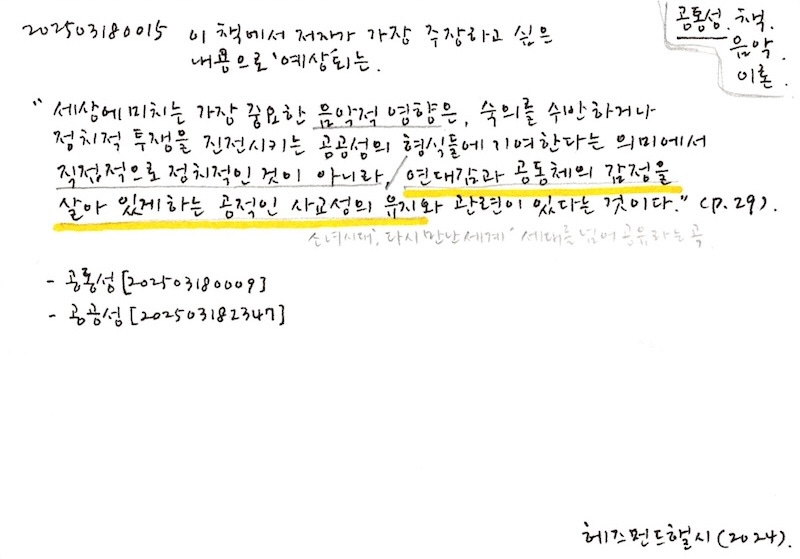 202503180015 이 책에서 저자가 가장 주장하고 싶은
내용으로 '예상'되는.
공통성. 책.
음악.
이론.
"세상에 미치는 가장 중요한 음악적 영향은, 숙의를 수반하거나
정치적 투쟁을 진전시키는 공공성의 형식들에 기여한다는 의미에서
직접적으로 정치적인 것이 아니라, 연대감과 공동체의 감정을
살아 있게하는 공적인 사교성의 유지와 관련이 있다는 것이다." (p.29).
소녀시대', 다시 만난 세계' 세대를 넘어 공유하는 곡
- 공통성 [202503180009]
- 공공성 [202503182347]
헤즈먼드핼시 (2024).